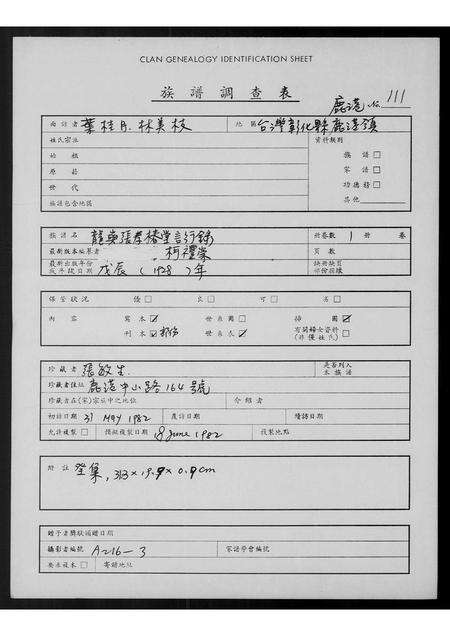 CLAN GENEALOGY IDENTIFICATION SHEET
族譜調查表
鹿港 No. 111
面訪者 葉桂月. 林美枝 地區 台灣彰化縣鹿港鎮
姓氏宗泣 資料類別
始祖 族譜 □
原籍 家譜 □
世代 功德簿 □
族譜包含地區 其他
族譜名 卷數 1 冊 卷
最新版本編纂者 柯禮崇 頁數
最新出版年份 缺冊缺頁
或手録日期 戊辰 ( 1928 ) 年
保管狀況 優 □ 良 □ 可 □ 劣 □
內容 寫本 ☑ 世系圖 □ 掃圖 ☑
刊本 ☑ 部份 世系表 ☑ 有關婦女資料 □
(非僅姓氏)
珍藏者 張敏生 是否列入
本族譜
珍藏者住址 鹿港中山路164號
珍藏者在(宗)家族中之地位 介紹者
初訪日期 31 MAY 1982 複訪日期 續訪日期
允許複製 □ 攝製日期 8 June 1982 複製地點
附註 , 33.3 × 19.9 × 0.9 cm
贈予者獎狀頒贈日期
攝影者編號 A216-3 家譜學會編號
要求複本 □ 寄贈地址